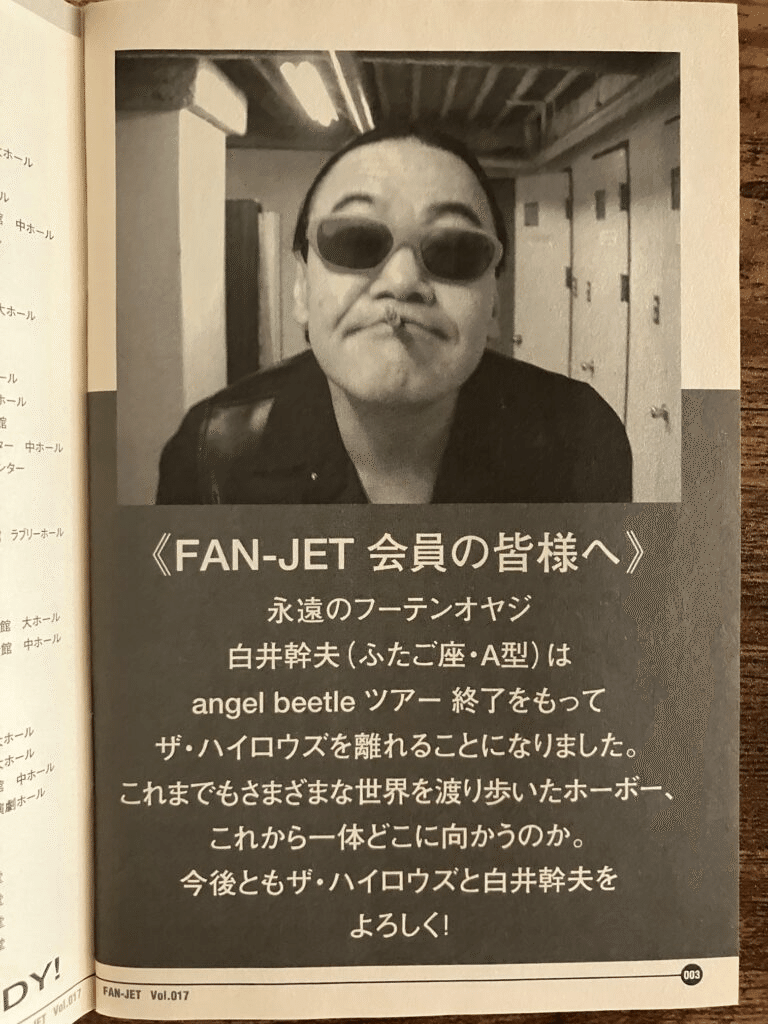 大ホール
館 中ホール
大ホール
ール
ホール
館
ター 中ホール
ンター
館 ラブリーホール
館 大ホール
館 中ホール
大ホール
大ホール
館 中ホール
演劇ホール
堂
堂
堂
堂
DY!
JET Vol.017
《FAN-JET 会員の皆様へ》
永遠のフーテンオヤジ
白井幹夫(ふたご座・A型)は
angel beetle ツアー 終了をもって
ザ・ハイロウズを離れることになりました。
これまでもさまざまな世界を渡り歩いたホーボー、
これから一体どこに向かうのか。
今後ともザ・ハイロウズと白井幹夫を
よろしく!
FAN-JET Vol.017
003